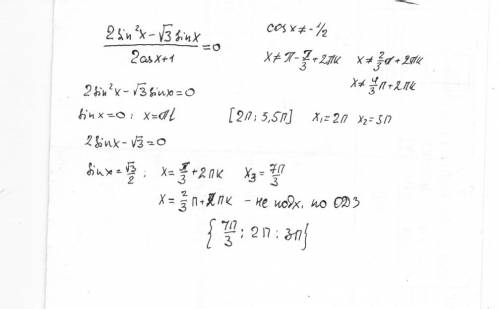 2sin²x - √3 sinx / 2cosx+1 = 0
cosx ≠ -1/2
x ≠ π - π/3 + 2πк x ≠ 2/3 π + 2πк
x ≠ 4/3 π + 2πк
2sin²x - √3 sinx = 0
sinx = 0 ; x = πl [2π ; 3,5π] x₁ = 2π x₂ = 3π
2sinx - √3 = 0
sinx = √3/2 ; x = π/3 + 2πк x₃ = 7π/3
x = 2/3 π + 2πк - не подх. по ОДЗ
{ 7π/3 ; 2π ; 3π }